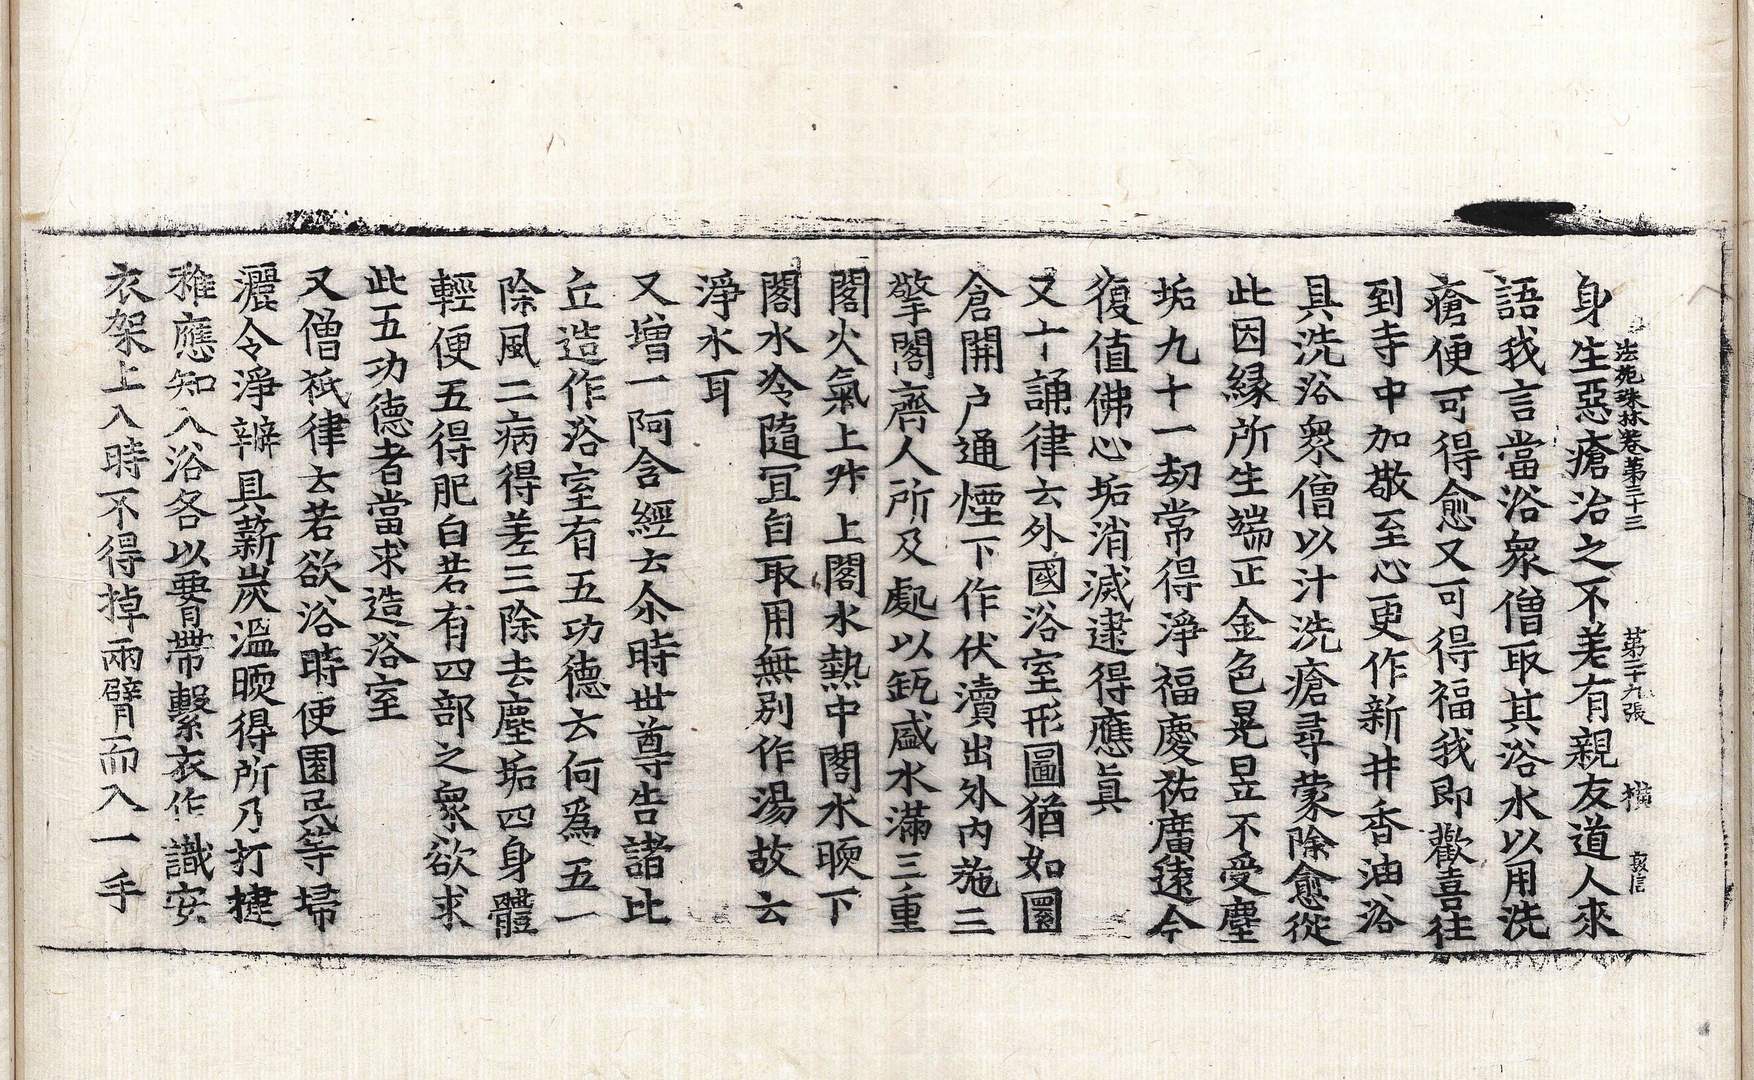 法苑珠林卷第三十三 第二十九張 橫 敦信
身生惡瘡治之不差有親友道人來
語我言當浴衆僧取其浴水以用洗
瘡便可得愈又可得福我即歡喜往
到寺中加敬至心更作新井香油浴
具洗浴衆僧以汁洗瘡尋蒙除愈從
此因緣所生端正金色晃昱不受塵
垢九十一劫常得淨福慶祐廣遠今
復值佛心垢消滅逮得應眞
又十誦律云外國浴室形圖猶如圓
倉開户通煙下作伏瀆出外內施三
擎閣齊人所及處以瓨盛水滿三重
閣火氣上升上閣水熱中閣水暖下
閣水冷隨冝自取用無別作湯故云
淨水耳
又增一阿含經云尒時世尊告諸比
丘造作浴室有五功德云何爲五一
除風二病得差三除去塵垢四身體
輕便五得肥白若有四部之衆欲求
此五功德者當求造浴室
又僧祇律云若欲浴時使園民等掃
灑令淨辦具薪炭溫暖得所乃打揵
稚應知入浴各以腰帶繫衣作識安
衣架上入時不得掉兩臂而入一手